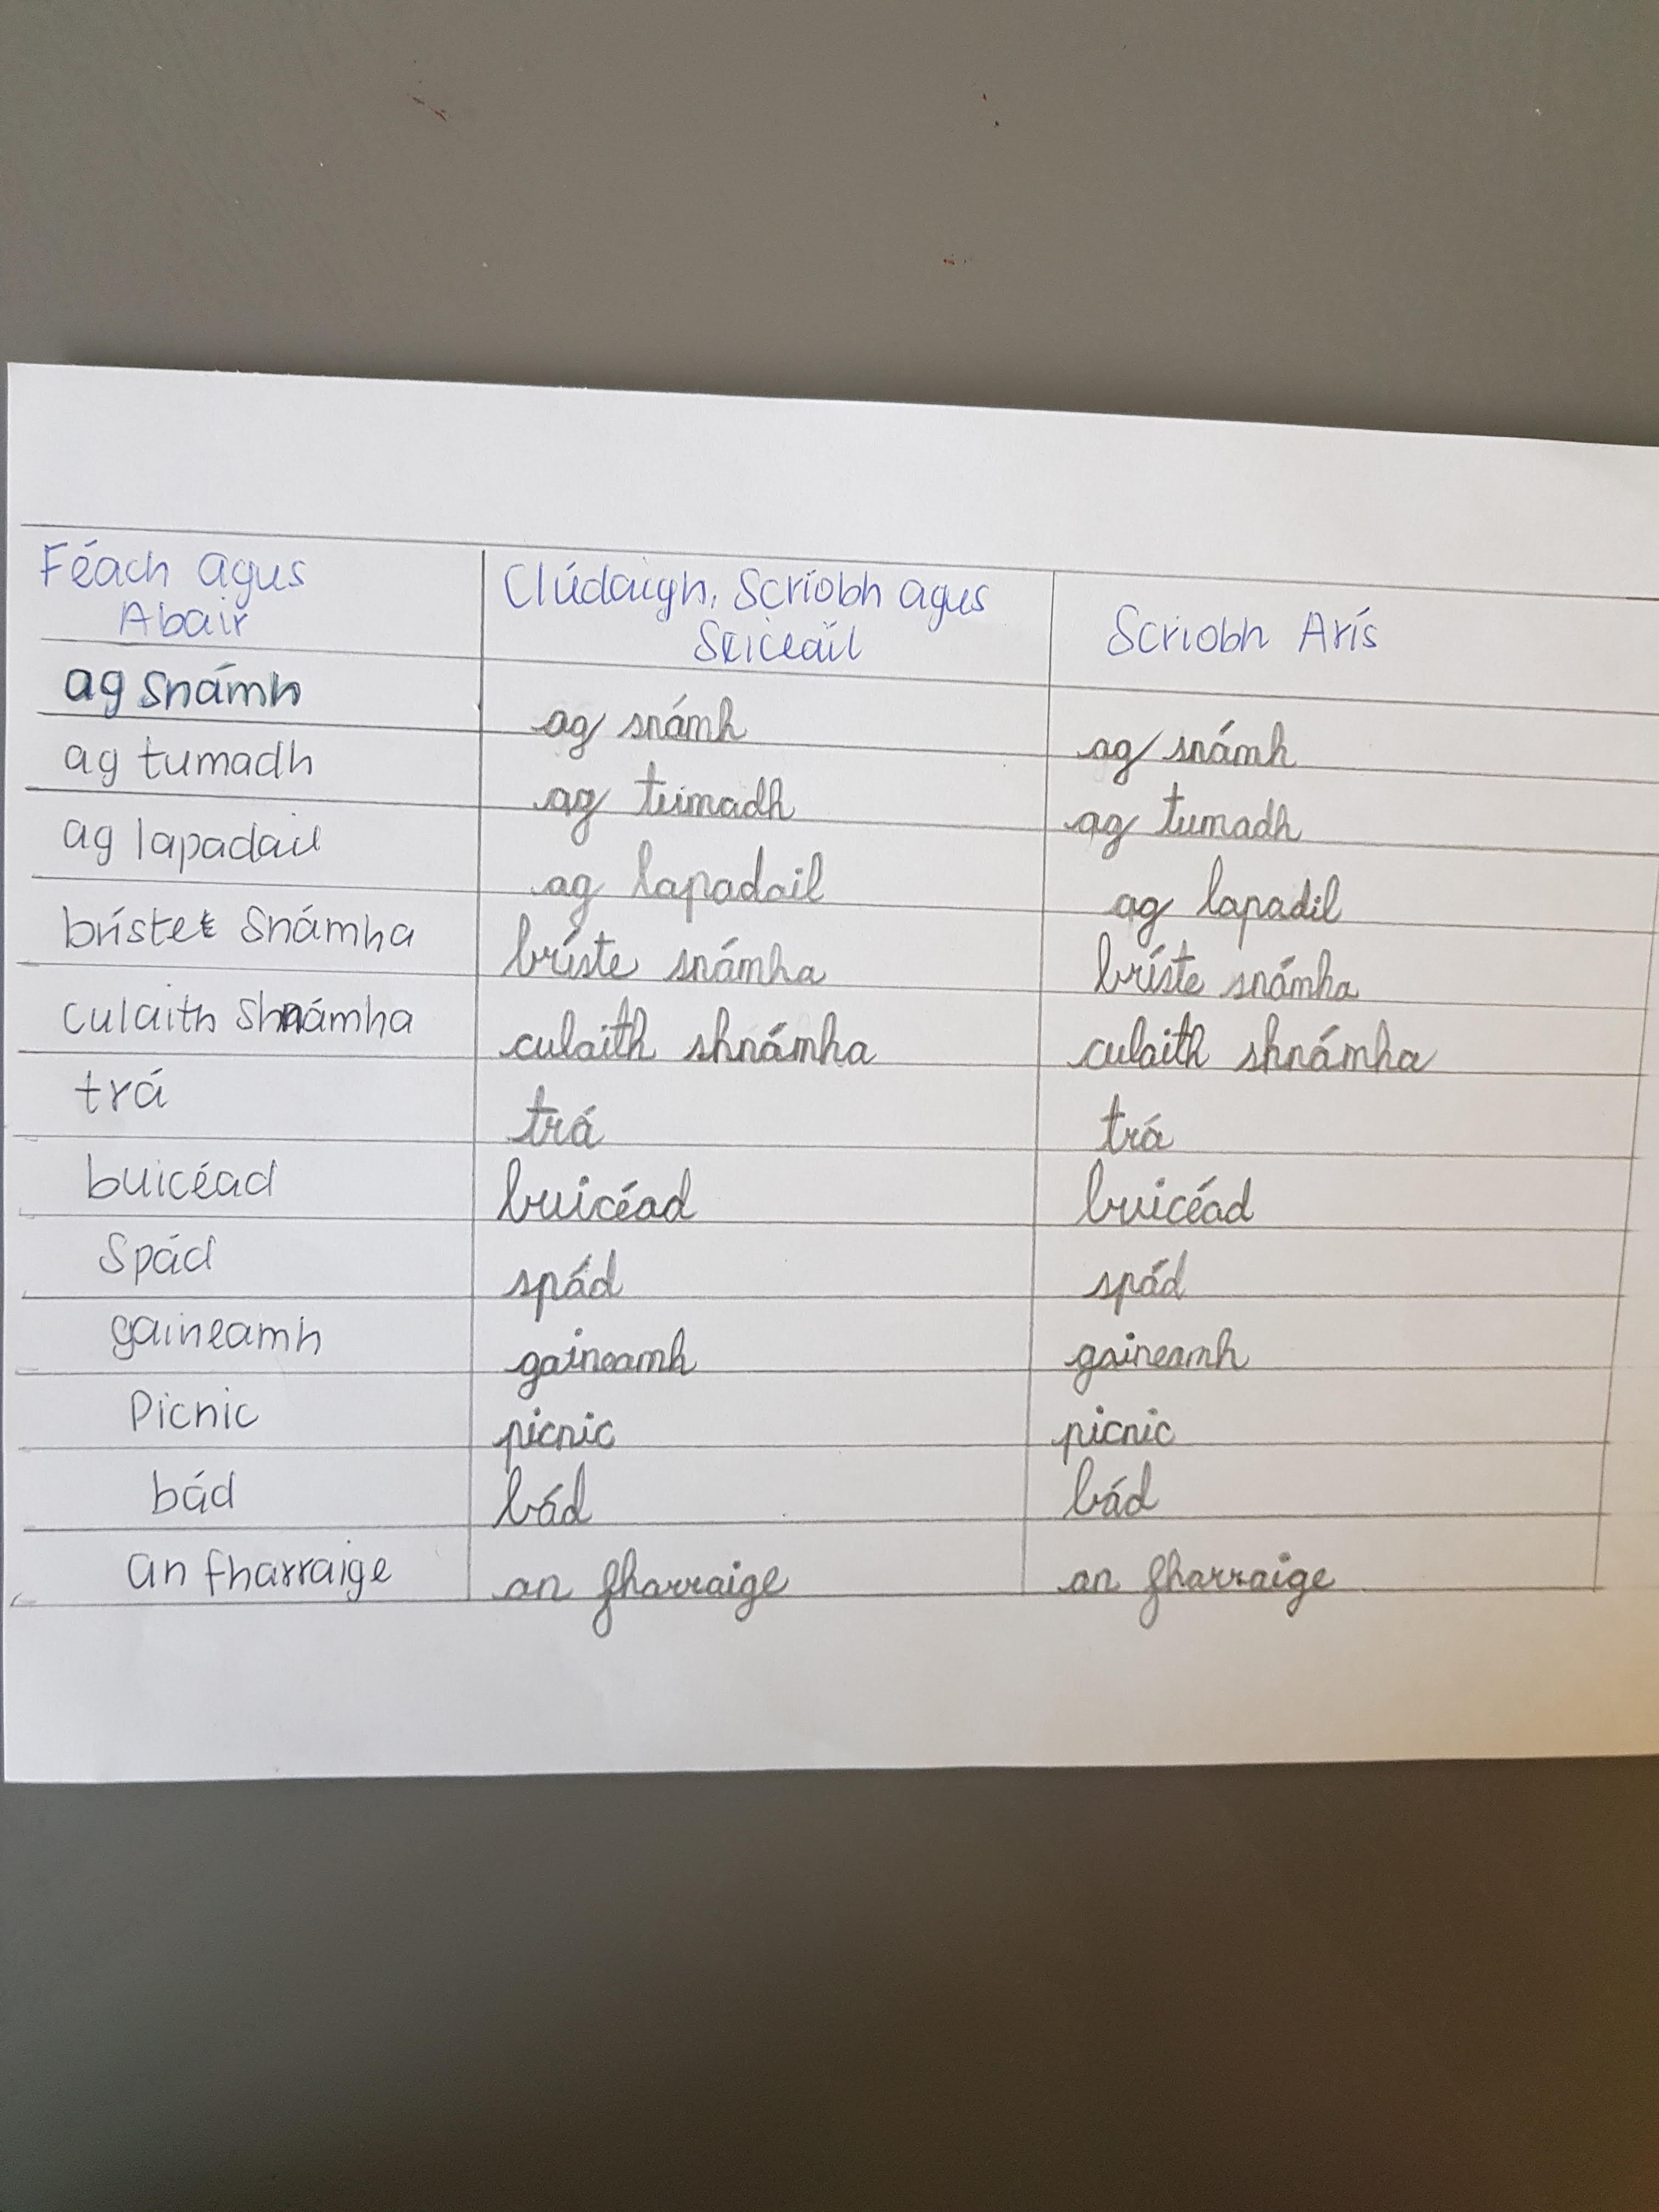 Féach agus Abair | Clúdaigh, Scríobh agus Seiceáil | Scríobh Arís
ag snámh | ag snámh | ag snámh
ag tumadh | ag tumadh | ag tumadh
ag lapadail | ag lapadail | ag lapadil
bríste snámha | bríste snámha | bríste snámha
culaith shnámha | culaith shnámha | culaith shnámha
trá | trá | trá
buicéad | buicéad | buicéad
spád | spád | spád
gaineamh | gaineamh | gaineamh
Picnic | picnic | picnic
bád | bád | bád
an fharraige | an fharraige | an fharraige